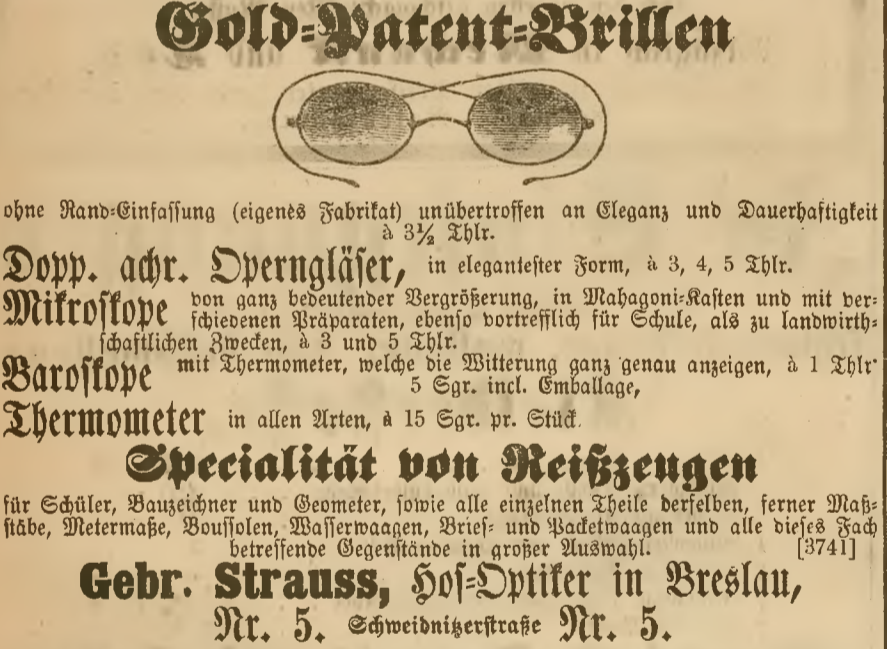 Gold-Patent-Brillen
ohne Rand-Einfassung (eigenes Fabrikat) unübertroffen an Eleganz und Dauerhaftigkeit
à 3½ Thlr.
Dopp. achr. Operngläser, in elegantester Form, à 3, 4, 5 Thlr.
Mikroskope von ganz bedeutender Vergrößerung, in Mahagoni-Kasten und mit ver-
schiedenen Präparaten, ebenso vortrefflich für Schule, als zu landwirth-
schaftlichen Zwecken, à 3 und 5 Thlr.
Baroskope mit Thermometer, welche die Witterung ganz genau anzeigen, à 1 Thlr.
5 Sgr. incl. Emballage,
Thermometer in allen Arten, à 15 Sgr. pr. Stück.
Specialität von Reißzeugen
für Schüler, Bauzeichner und Geometer, sowie alle einzelnen Theile derselben, ferner Maß-
stäbe, Metermaße, Boussolen, Wasserwaagen, Brief- und Packetwaagen und alle dieses Fach
betreffende Gegenstände in großer Auswahl. [3741]
Gebr. Strauss, Hof-Optiker in Breslau,
Nr. 5. Schweidnitzerstraße Nr. 5.